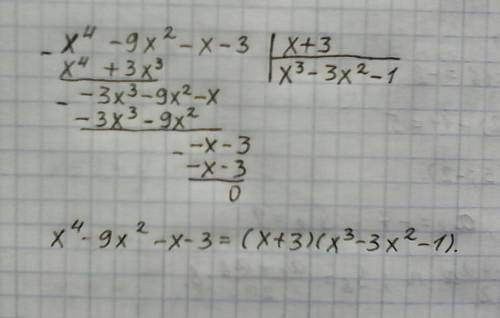 - x⁴ - 9x² - x - 3 | x+3
x⁴ + 3x³ | x³ - 3x² - 1
- -3x³ - 9x² - x
-3x³ - 9x²
- -x - 3
-x - 3
0
x⁴ - 9x² - x - 3 = (x+3)(x³ - 3x² - 1).